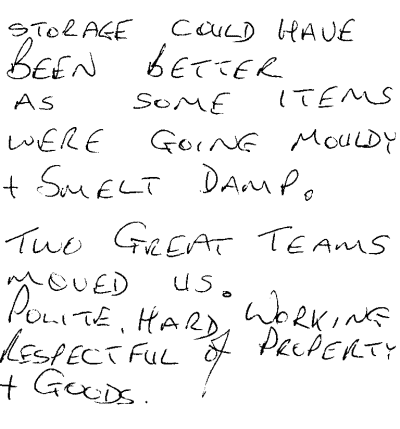 STORAGE COULD HAVE
BEEN BETTER
AS SOME ITEMS
WERE GOING MOULDY
+ SMELT DAMP.
TWO GREAT TEAMS
MOVED US.
POLITE, HARD, WORKING
RESPECTFUL of PROPERTY
+ GOODS.